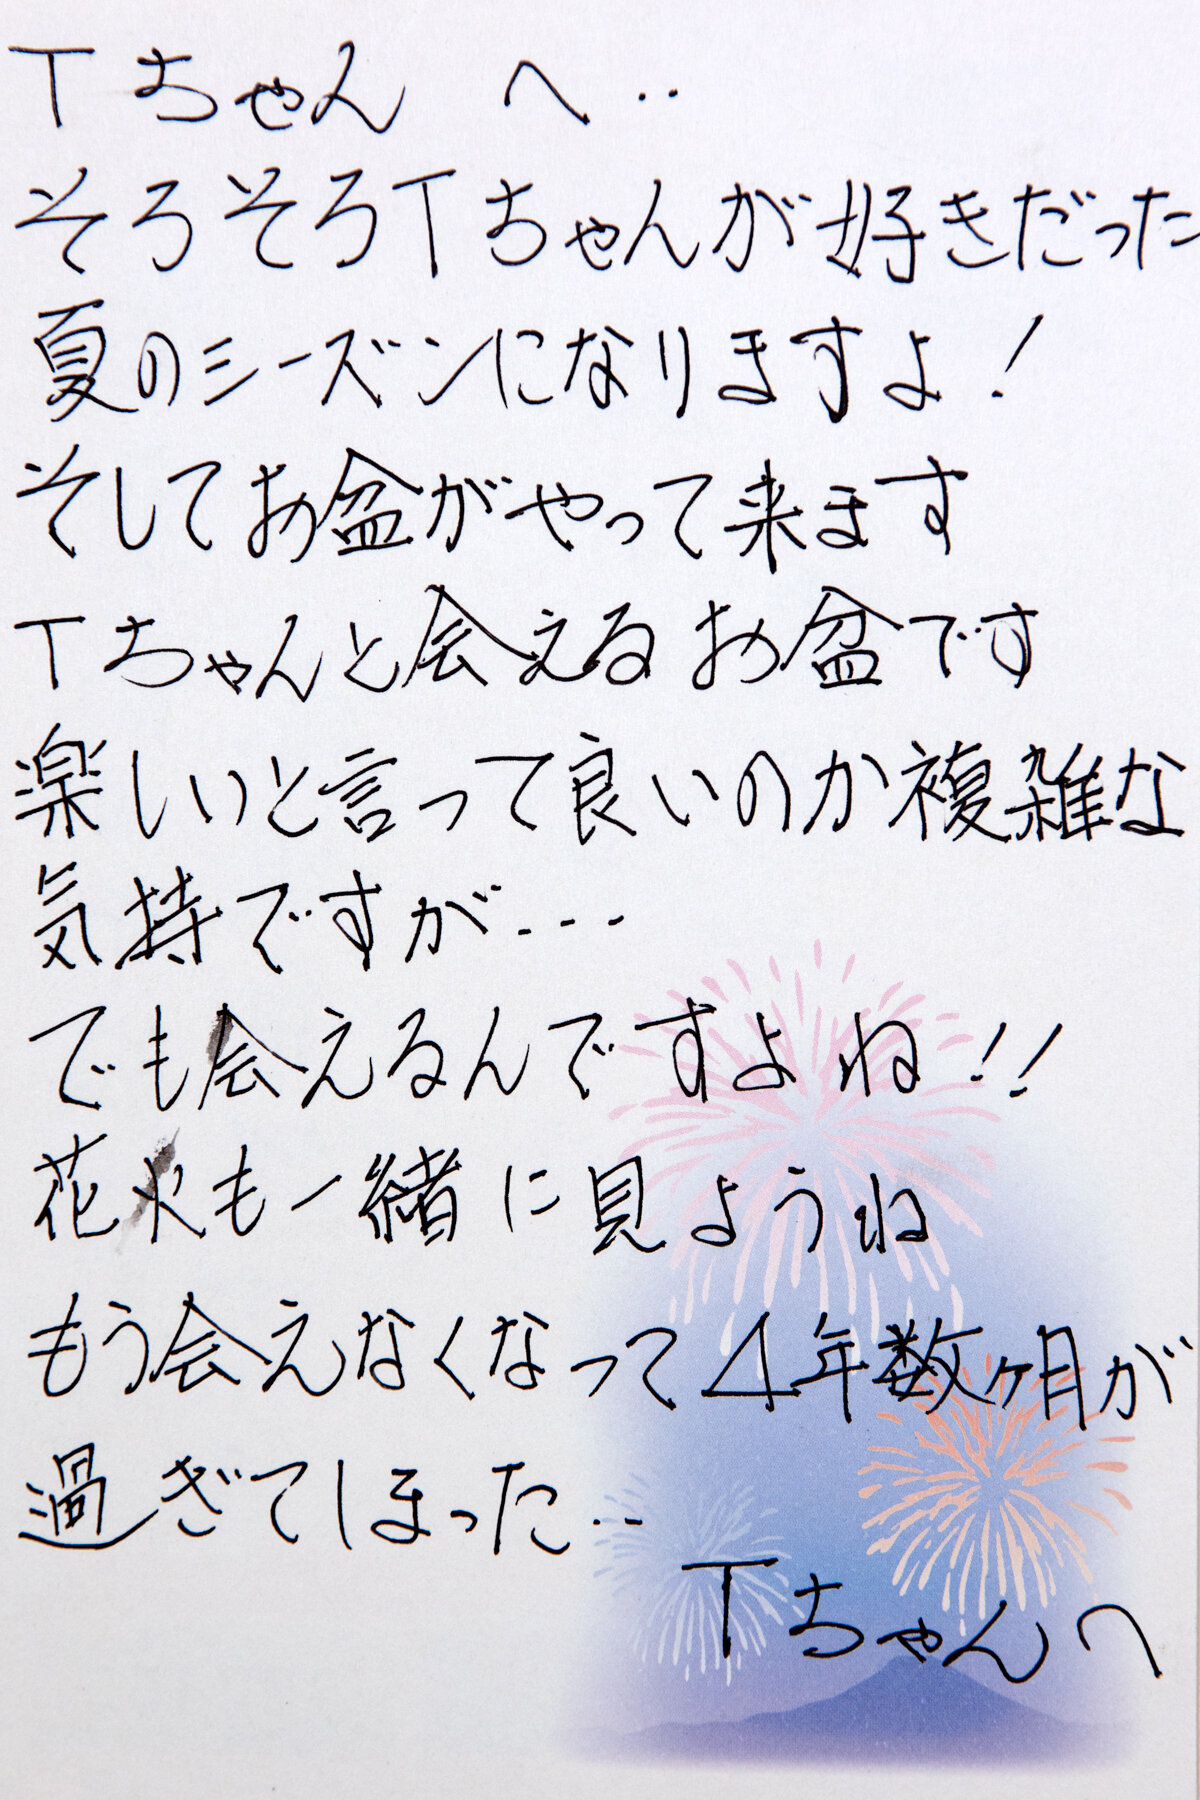 Tちゃん へ‥
そろそろTちゃんが好きだった
夏のシーズンになりますよ！
そしてお盆がやって来ます
Tちゃんと会えるお盆です
楽しいと言って良いのか複雑な
気持ですが…
でも会えるんですよね！！
花火も一緒に見ようね
もう会えなくなって4年数ヶ月が
過ぎてしまった‥
Tちゃんへ